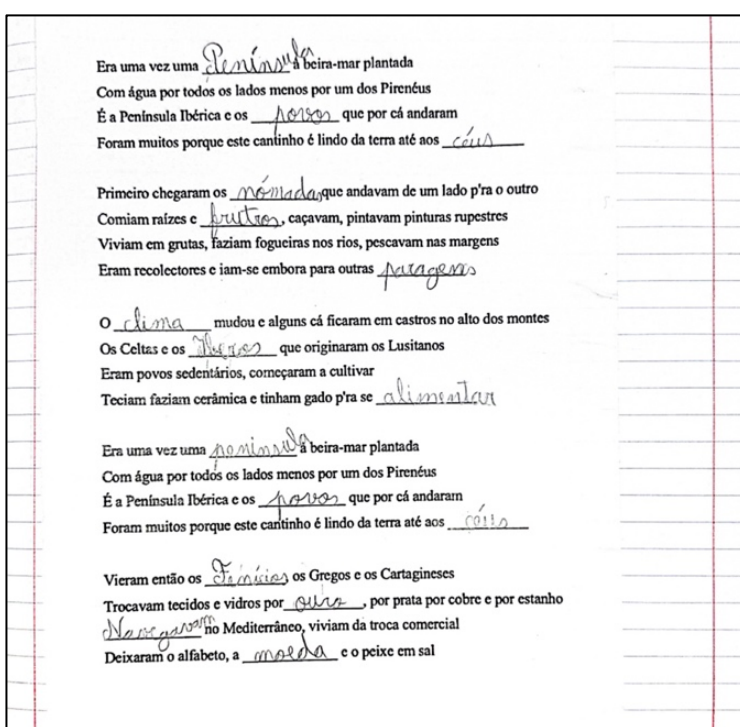 Era uma vez uma Península à beira-mar plantada
Com água por todos os lados menos por um dos Pirenéus
É a Península Ibérica e os povos que por cá andaram
Foram muitos porque este cantinho é lindo da terra até aos céus
Primeiro chegaram os nómadas que andavam de um lado p'ra o outro
Comiam raízes e fructros, caçavam, pintavam pinturas rupestres
Viviam em grutas, faziam fogueiras nos rios, pescavam nas margens
Eram recolectores e iam-se embora para outras paragens
O clima mudou e alguns cá ficaram em castros no alto dos montes
Os Celtas e os Iberos que originaram os Lusitanos
Eram povos sedentários, começaram a cultivar
Teciam faziam cerâmica e tinham gado p'ra se alimentar
Era uma vez uma península à beira-mar plantada
Com água por todos os lados menos por um dos Pirenéus
É a Península Ibérica e os povos que por cá andaram
Foram muitos porque este cantinho é lindo da terra até aos céus
Vieram então os Fenícios os Gregos e os Cartagineses
Trocavam tecidos e vidros por ouro, por prata por cobre e por estanho
Navegavam no Mediterrâneo, viviam da troca comercial
Deixaram o alfabeto, a moeda e o peixe em sal